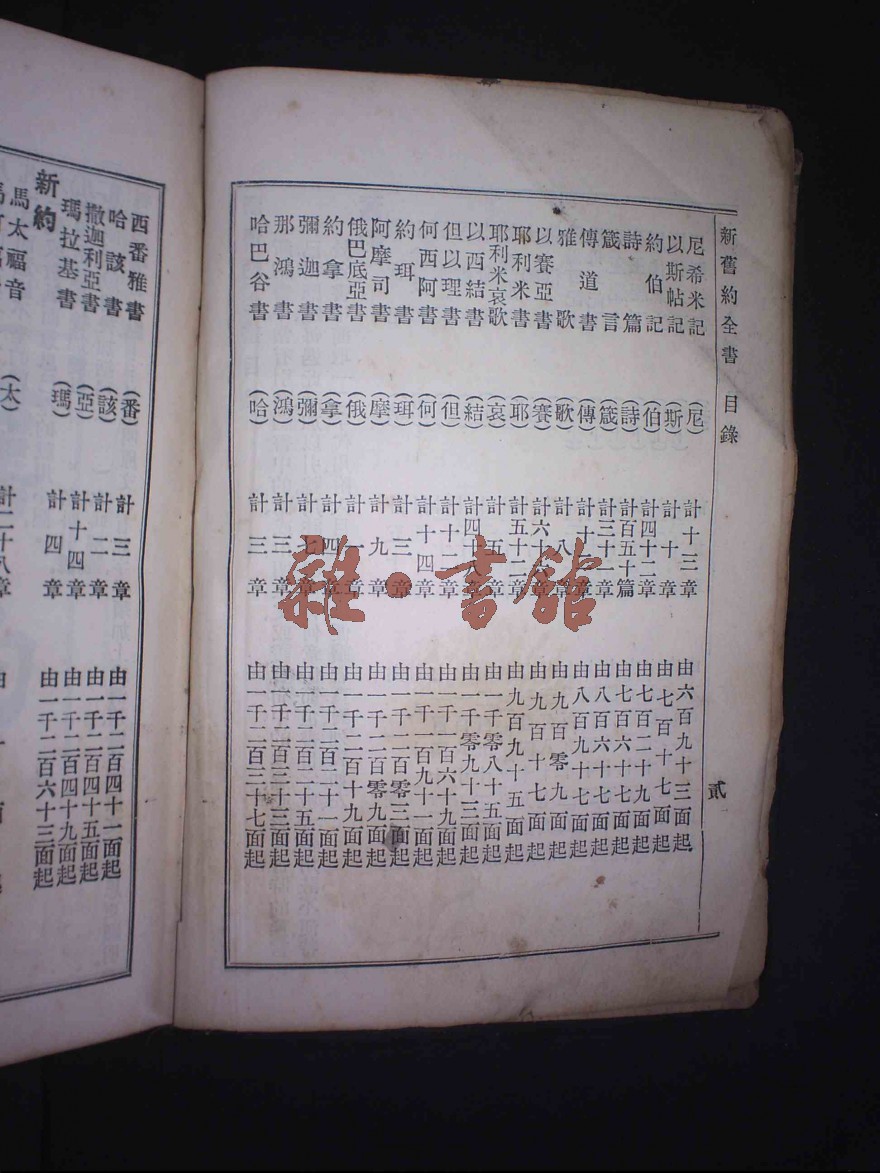 新舊約全書 目錄 貳
尼希米記 (尼) 計十三章 由六百九十三面起
以斯帖記 (斯) 計十章 由七百十七面起
約伯記 (伯) 計四十二章 由七百二十九面起
詩篇 (詩) 計百五十篇 由七百六十七面起
箴言 (箴) 計三十一章 由八百六十七面起
傳道書 (傳) 計十二章 由八百九十七面起
雅歌 (歌) 計八章 由九百零九面起
以賽亞書 (賽) 計六十六章 由九百十七面起
耶利米書 (耶) 計五十二章 由九百九十五面起
耶利米哀歌 (哀) 計五章 由一千零八十五面起
以西結書 (結) 計四十八章 由一千零九十三面起
但以理書 (但) 計十二章 由一千一百六十九面起
何西阿書 (何) 計十四章 由一千一百九十一面起
約珥書 (珥) 計三章 由一千二百零三面起
阿摩司書 (摩) 計九章 由一千二百零九面起
俄巴底亞書 (俄) 計一章 由一千二百十九面起
約拿書 (拿) 計四章 由一千二百二十一面起
彌迦書 (彌) 計七章 由一千二百二十五面起
那鴻書 (鴻) 計三章 由一千二百三十三面起
哈巴谷書 (哈) 計三章 由一千二百三十七面起
西番雅書 (番) 計三章 由一千二百四十一面起
哈該書 (該) 計二章 由一千二百四十五面起
撒迦利亞書 (亞) 計十四章 由一千二百四十九面起
瑪拉基書 (瑪) 計四章 由一千二百六十三面起
新約
馬太福音 (太) 計二十八章 由一
雜·書館